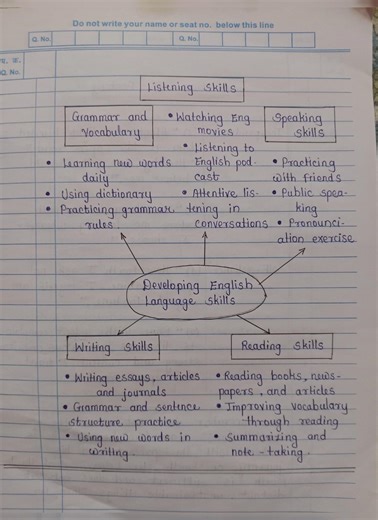 Do not write your name or seat no. below this line
Q. No. Q. No.
प्र. क्र.
Q. No.
Listening Skills
Grammar and
Vocabulary
• Learning new words
daily
• Using dictionary
• Practicing grammar
rules
• Watching Eng
movies
• Listening to
English pod-
cast
• Attentive lis-
tening in
conversations
Speaking
Skills
• Practicing
with friends
• Public spea-
king
• Pronounci-
ation exercise
Developing English
Language Skills
Writing Skills
• Writing essays, articles
and journals
• Grammar and sentence
structure practice
• Using new words in
writing.
Reading Skills
• Reading books, news-
papers, and articles
• Improving vocabulary
through reading
• Summarizing and
note-taking.